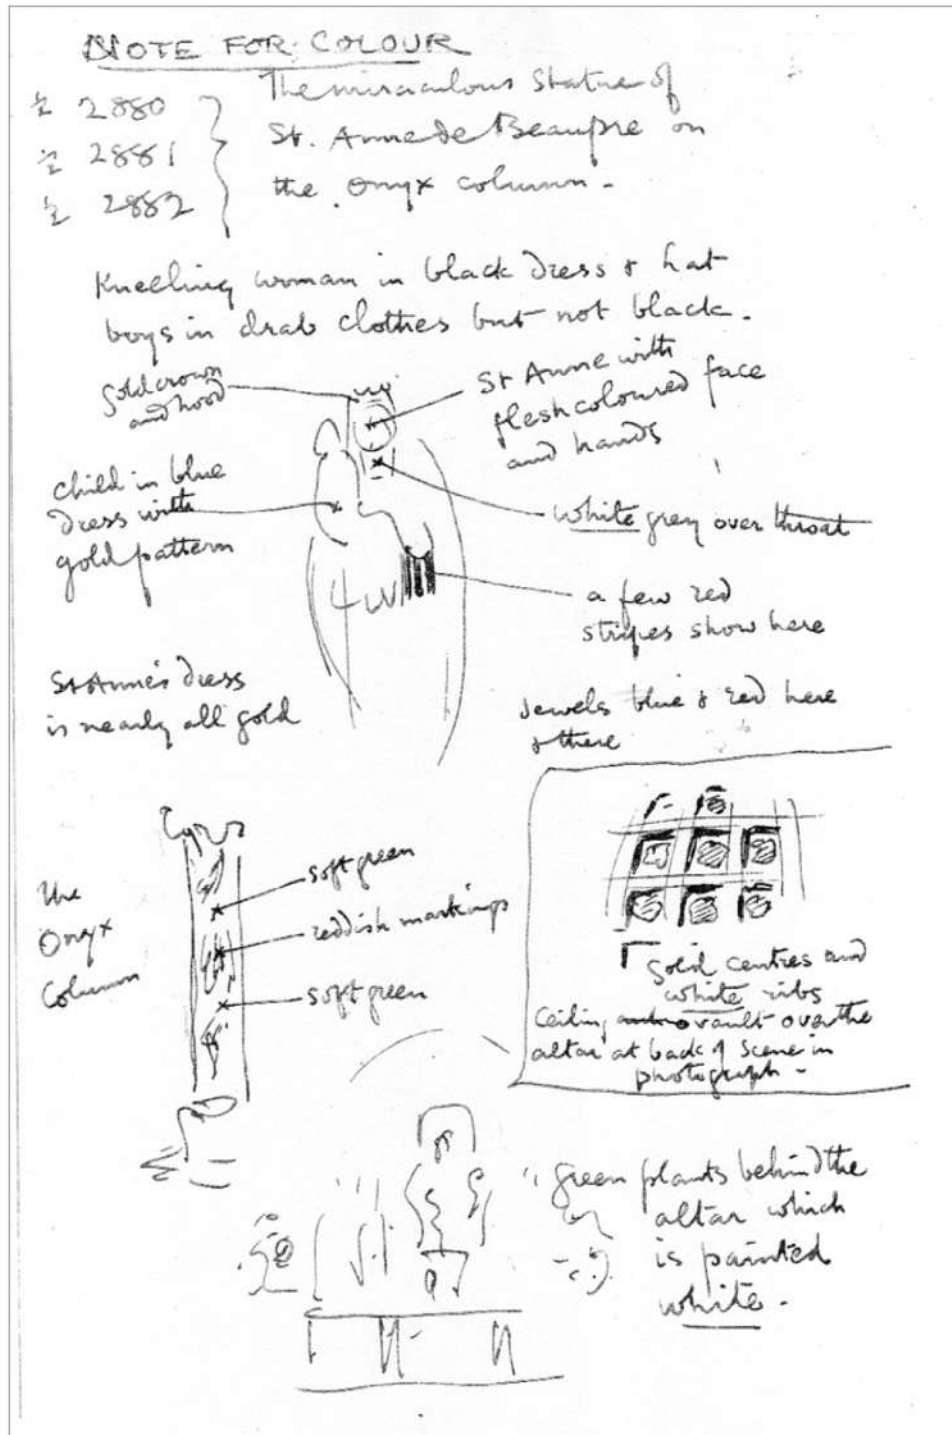 NOTE FOR COLOUR
½ 2880
½ 2881
½ 2882
The miraculous Statue of
St. Anne de Beaupre on
the Onyx column.
Kneeling woman in black dress & hat
boys in drab clothes but not black.
Gold crown
and hood
St Anne with
flesh coloured face
and hands
child in blue
dress with
gold pattern
white grey over throat
a few red
stripes show here
St Anne's dress
is nearly all gold
Jewels blue & red here
& there
The
Onyx
Column
soft green
reddish markings
soft green
Gold centres and
white ribs
Ceiling vault over the
altar at back of scene in
photograph -
green plants behind the
altar which
is painted
white.